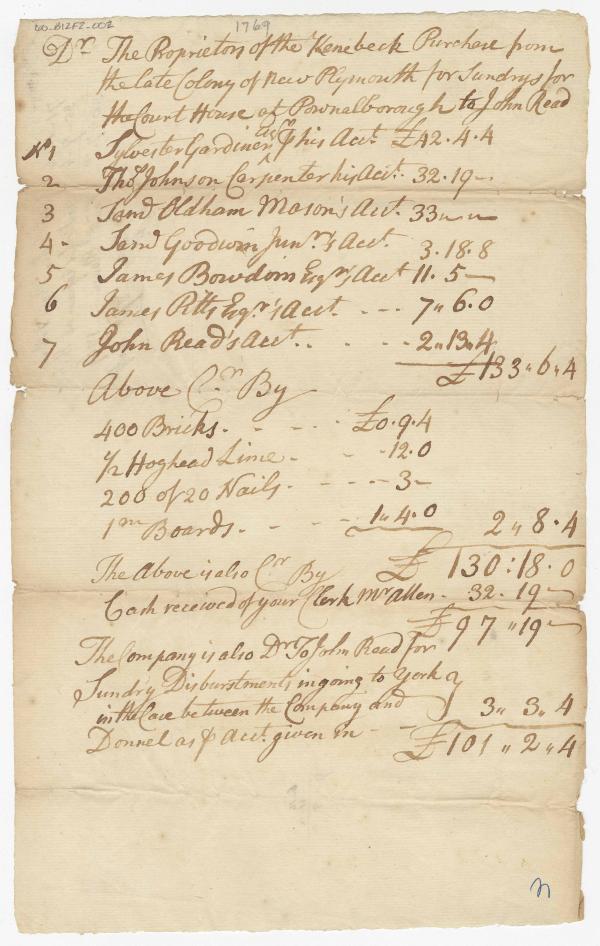 00-B12F2-002
1769
Dr. The Proprietors of the Kenebeck Purchase from
the late Colony of New Plymouth for Sundrys for
the Court House at Pownalborough to John Read
No 1 Sylvester Gardiner Esqr ⅌ his Acct. £42.4.4
2 Tho. Johnson Carpenter his Acct. 32.19—
3 Saml Oldham Mason's Act. 33 " — " —
4- Saml Goodwin Junr's Act. 3.18.8
5 James Bowdoin Esqr's Act 11.5—
6 James Pitts Esqr's Acct. - - - 7 " 6.0
7 John Read's Acct. . - - - 2 " 13 " 4
£133 " 6 " 4
Above Cr By
400 Bricks. - - - - £0.9.4
1/2 Hoghead Lime - - - 12.0
200 of 20 Nails - - - - 3-
1m Boards. - - - 1 " 4.0 2 " 8.4
The Above is also Cr By £130:18.0
Cash received of your Clerk Mr Allen - 32.19—
£97 " 19—
The Company is also Dr. To John Read for
Sundry Disburstments in going to York
in the Case between the Company and 3 " 3 " 4
Donnel as ⅌ Acct. given in - £101 " 2 " 4
n